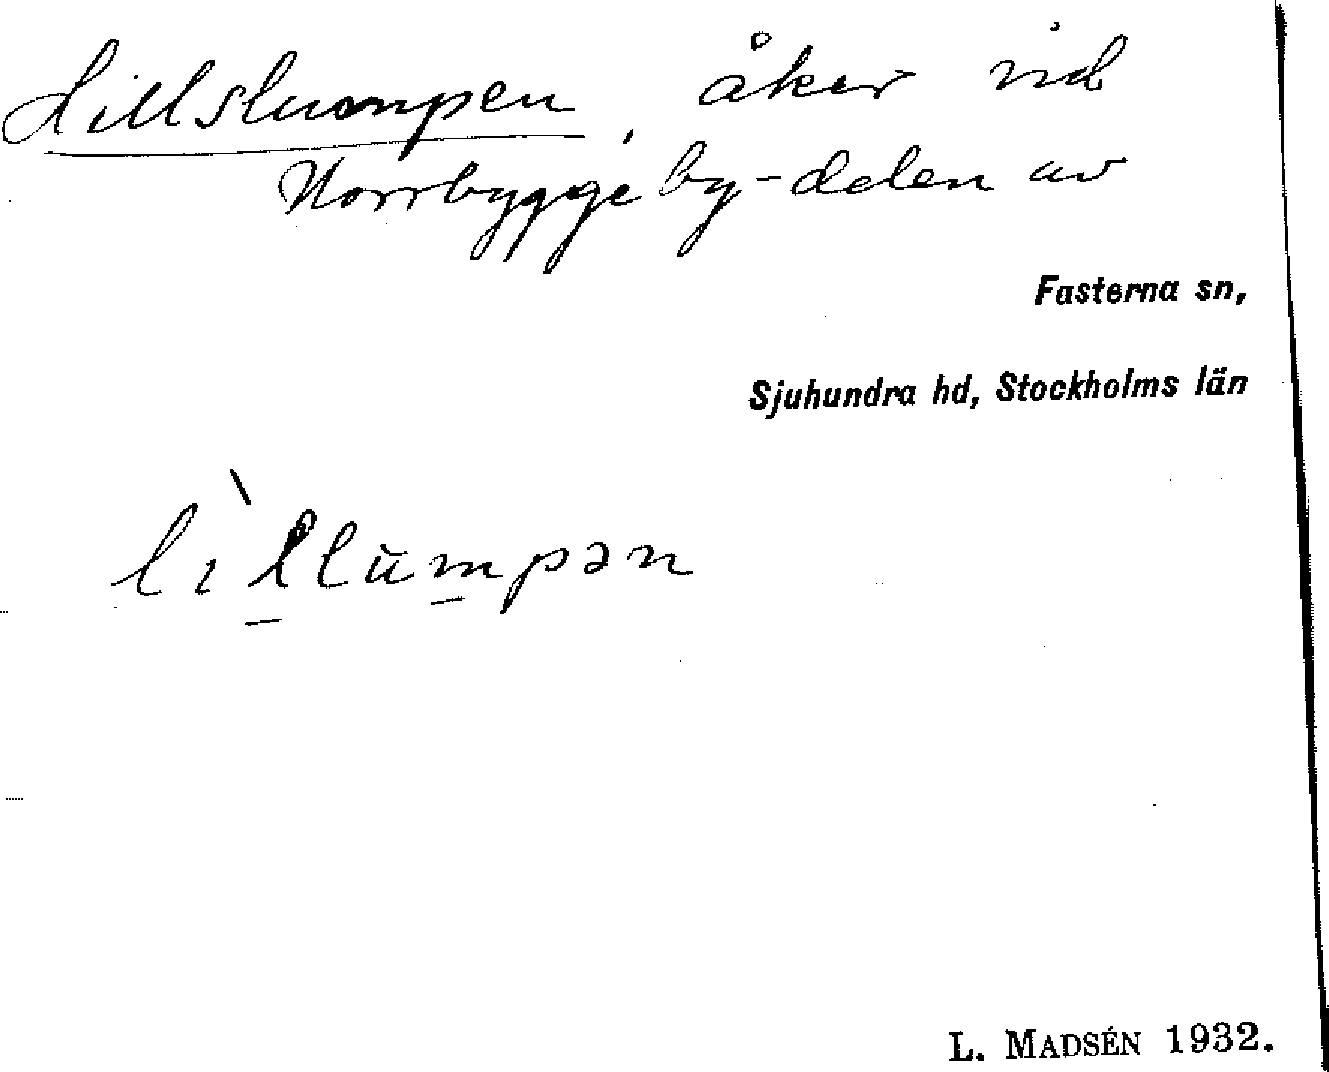 Lillslumpen, åker vid
Norrbyggeby-delen av
Fasterna sn,
Sjuhundra hd, Stockholms län
L. MADSÉN 1932.